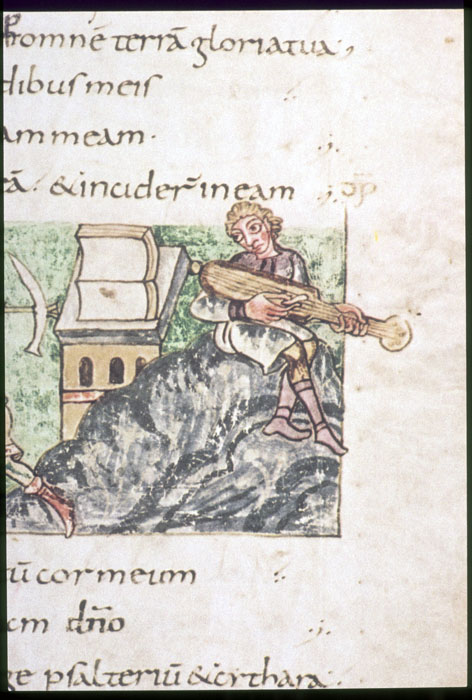 ꝑomnē terrā gloriatua;
dibus meis
am meam·
eā· & incider̄ in eam
tū cor meum
dn̄o
ge psalteriū & cythara